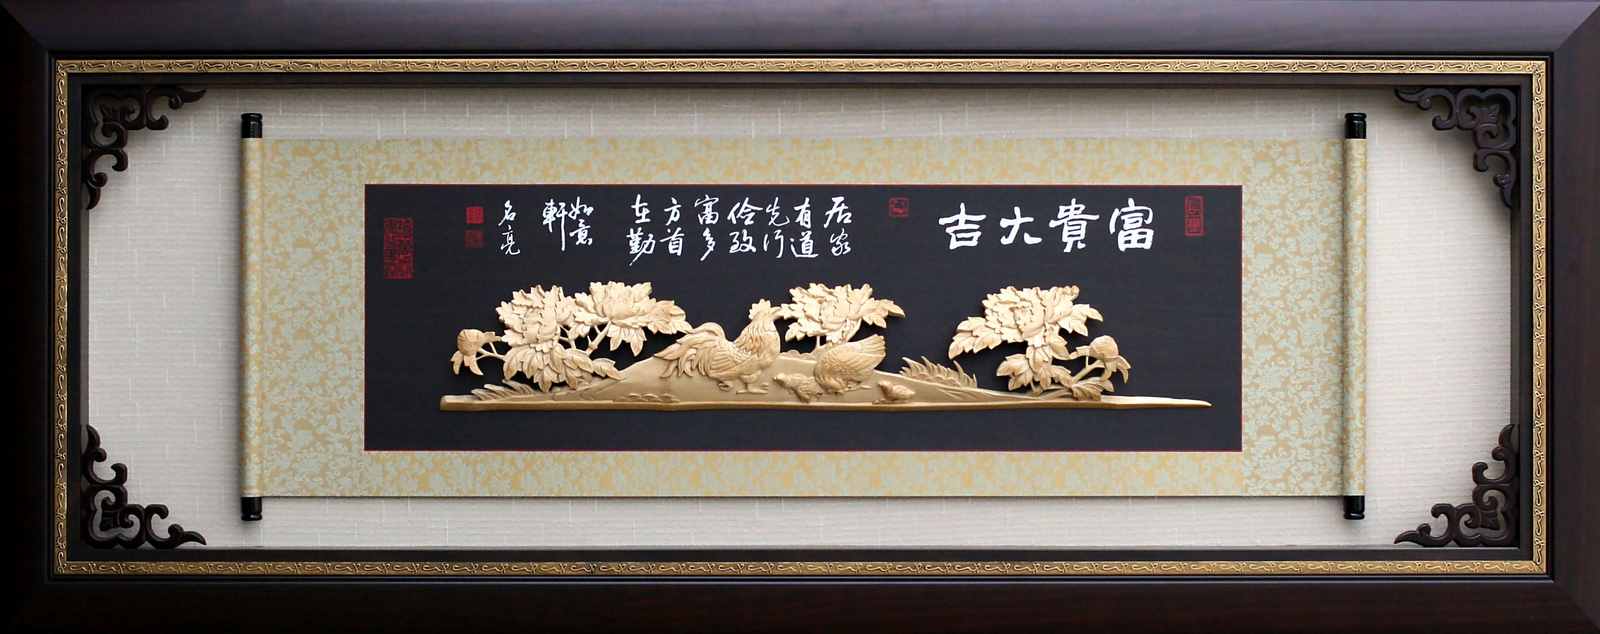 富貴大吉
居家
有道
先行
儉致
富多
方首
在勤
如意
軒
名亮